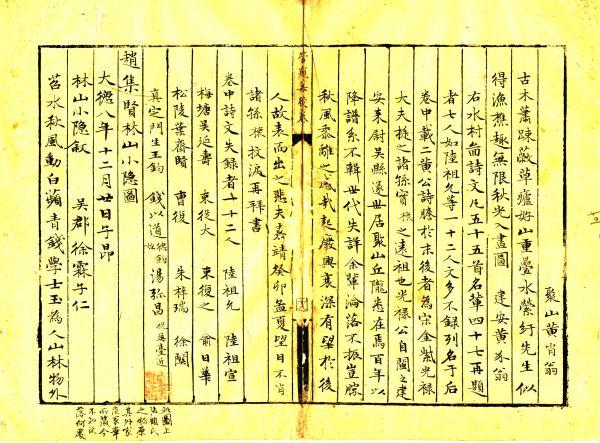 聚山黄肖翁
古木蕭踈蔽草廬好山重疊水縈紆先生似
得漁樵趣無限秋光入畫圖　建安黄〓翁
右水村畵詩文凡五十五首名軰四十七再題
者七人如陸祖允等一十二人文多不録列名于后
卷中載二黄公詩牋於末後者為宋金紫光禄
大夫〓之諸孫寳〓之遠祖也光禄公自閩之建
安来尉吴縣遂世居聚山丘隴悉在焉百年以
降譜系不輯世代失詳余軰淪落不振豈勝
秋風黍離之感哉起廢興衰深有望於後
人故表而出之悲夫嘉靖癸卯孟夏望日不肖
諸孫〓抆淚再拜書
卷中詩文失録者一十二人
陸祖允　陸祖宣
梅塘吴延壽　束從大　束復之　俞日華
松陵葉齋賢　曹復　朱梓瑞　徐関
真定門生王鈞　錢以道　湯弥昌
趙集賢林山小隐圖
大德八年十二月廿日子昂
林山小隐叙　吴郡徐霖子仁
苕水秋風動白蘋青錢學士玉為人山林物外